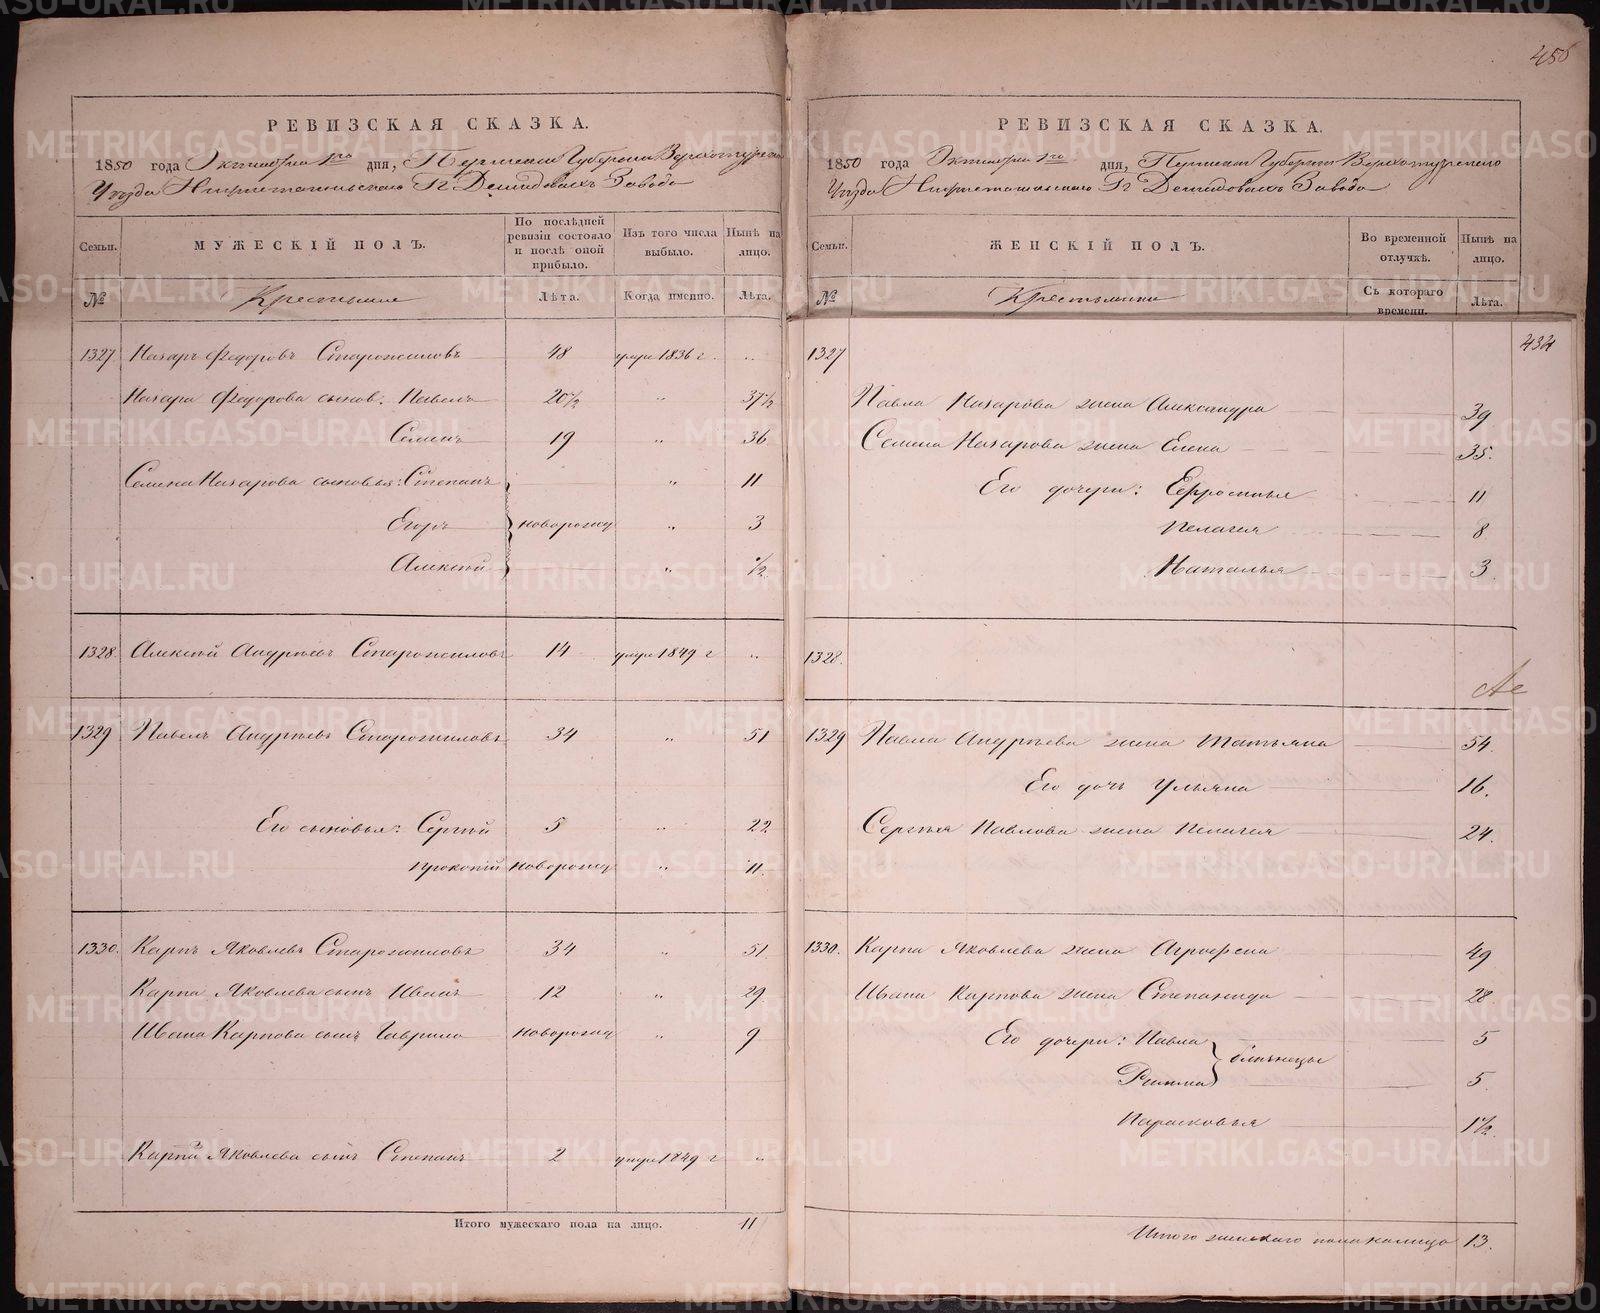 РЕВИЗСКАЯ СКАЗКА.
1850 года Октября 1го дня, Пермской Губернии Верхотурскаго
Уезда Нижнетагильскаго Гг Демидовыхъ Завода
Семьи.
МУЖЕСКІЙ ПОЛЪ.
По послѣдней ревизіи состояло и послѣ оной прибыло.
Изъ того числа выбыло.
Нынѣ на лицо.
№ Крестьяне Лѣта. Когда именно. Лѣта.
1327 Назаръ Федоровъ Старожиловъ 48 умре 1836 г „
Назара Федорова сынов. Павелъ 20½ „ 37½
Семенъ 19 „ 36
Семена Назарова сыновья: Степанъ „ 11
Егоръ новорожд „ 3
Алексѣй „ ½
1328. Алексѣй Андрѣевъ Старожиловъ 14 умре 1849 г „
1329 Павелъ Андрѣевъ Старожиловъ 34 „ 51
Его сыновья: Сергѣй 5 „ 22
Прокопій новорожд „ 11.
1330. Карпъ Яковлевъ Старожиловъ 34 „ 51.
Карпа Яковлева сынъ Иванъ 12 „ 29
Ивана Карпова сынъ Гаврило новорожд „ 9
Карпа Яковлева сынъ Степанъ 2 умре 1849 г „
Итого мужескаго пола на лицо. 11
456
РЕВИЗСКАЯ СКАЗКА.
1850 года Октября 1го дня, Пермской Губерніи Верхотурскаго
Уезда Нижнетагильскаго Гг Демидовыхъ Завода
Семьи.
ЖЕНСКІЙ ПОЛЪ.
Во временной отлучкѣ.
Нынѣ на лицо.
№ Крестьянки Съ котораго времени. Лѣта.
434
1327
Павла Назарова жена Александра 39
Семена Назарова жена Елена 35.
Его дочери: Ефросинья 11
Пелагея 8
Наталья 3
1328.
1329 Павла Андрѣева жена Татьяна 54.
Его дочь Ульяна 16.
Сергѣя Павлова жена Пелагея 24.
1330. Карпа Яковлева жена Агрофена 49
Ивана Карпова жена Степанида 28
Его дочери: Павла 5
близнецы
Римма 5.
Парасковья 1½.
Итого женскаго пола налицо 13.
METRIKI.GASO-URAL.RU